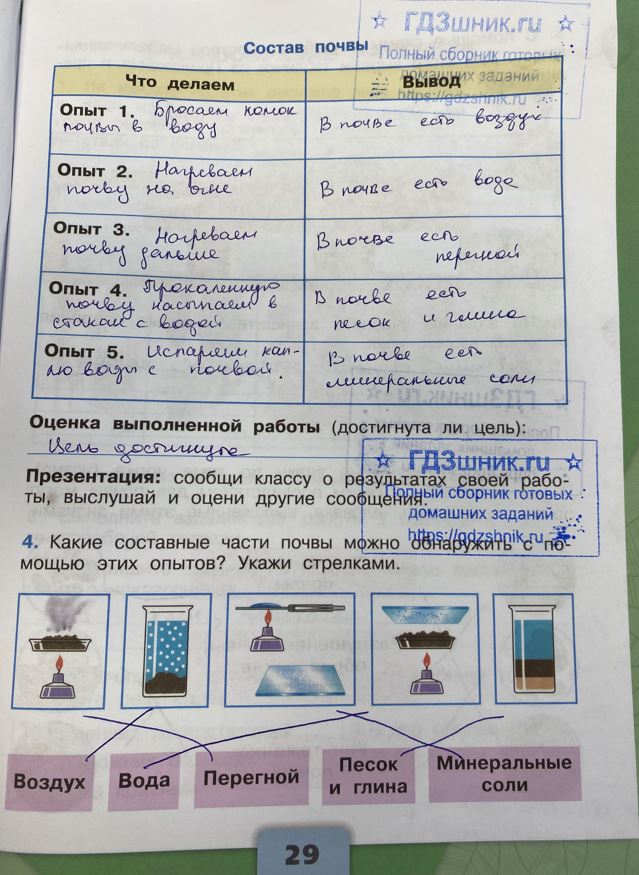 ☆ ГДЗшник.ru ☆
Полный сборник готовых
домашних заданий
https://gdzshnik.ru
Состав почвы
Что делаем Вывод
Опыт 1. Бросаем комок
почвы в воду
В почве есть воздух
Опыт 2. Нагреваем
почву на огне
В почве есть вода
Опыт 3. Нагреваем
почву дальше
В почве есть
перегной
Опыт 4. Прокаленную
почву насыпаем в
стакан с водой
В почве есть
песок и глина
Опыт 5. Испаряем кап-
лю воды с почвой.
В почве есть
минеральные соли
Оценка выполненной работы (достигнута ли цель):
Цель достигнута
Презентация: сообщи классу о результатах своей рабо-
ты, выслушай и оцени другие сообщения.
☆ ГДЗшник.ru ☆
Полный сборник готовых
домашних заданий
https://gdzshnik.ru
4. Какие составные части почвы можно обнаружить с по-
мощью этих опытов? Укажи стрелками.
Воздух
Вода
Перегной
Песок
и глина
Минеральные
соли
29